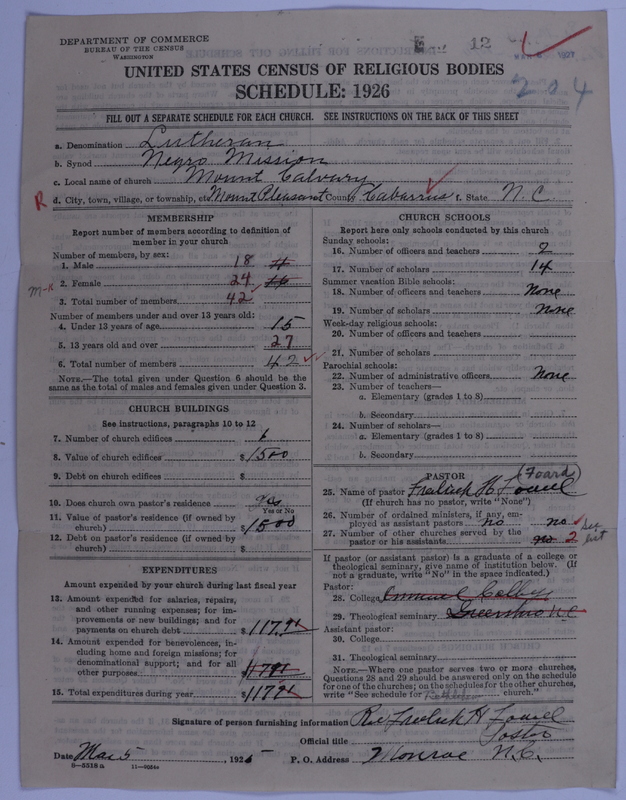 DEPARTMENT OF COMMERCE
BUREAU OF THE CENSUS
WASHINGTON
12
204
UNITED STATES CENSUS OF RELIGIOUS BODIES
SCHEDULE: 1926
FILL OUT A SEPARATE SCHEDULE FOR EACH CHURCH. SEE INSTRUCTIONS ON THE BACK OF THIS SHEET
a. Denomination Lutheran
b. Synod Negro Mission
c. Local name of church Mount Calvary
R d. City, town, village, or township, etc Mount Pleasant County Cabarrus f. State N. C
MEMBERSHIP
Report number of members according to definition of
member in your church
Number of members, by sex:
1. Male 18
2. Female 24 16
3. Total number of members 42
Number of members under and over 13 years old:
4. Under 13 years of age 15
5. 13 years old and over 27
6. Total number of members 42
NOTE.—The total given under Question 6 should be
same as the total of males and females given under Question 3.
CHURCH BUILDINGS
See instructions, paragraphs 10 to 12
7. Number of church edifices 1
8. Value of church edifices $1500
9. Debt on church edifices $
10. Does church own pastor's residence?
Yes or No
11. Value of pastor's residence (if owned by
church) $1500
12. Debt on pastor's residence (if owned by
church) $
EXPENDITURES
Amount expended by your church during last fiscal year
13. Amount expended for salaries, repairs,
and other running expenses; for im-
provements or new buildings; and for
payments on church debt $117.91
14. Amount expended for benevolences, in-
cluding home and foreign missions; for
denominational support; and for all
other purposes
15. Total expenditures during year $117.91
CHURCH SCHOOLS
Report here only schools conducted by this church
Sunday schools:
16. Number of officers and teachers 2
17. Number of scholars 14
Summer vacation Bible schools:
18. Number of officers and teachers None
19. Number of scholars None
Week-day religious schools:
20. Number of officers and teachers
21. Number of scholars
Parochial schools:
22. Number of administrative officers None
23. Number of teachers—
a. Elementary (grades 1 to 8)
b. Secondary
24. Number of scholars—
a. Elementary (grades 1 to 8)
b. Secondary
PASTOR
(Foard)
25. Name of pastor Fredrick H
(If church has no pastor, write "None")
26. Number of ordained ministers, if any, em-
ployed as assistant pastors no no
27. Number of other churches served by the
pastor or his assistants no 2
If pastor (or assistant pastor) is a graduate of a college or
theological seminary, give name of institution below. (If
not a graduate, write "No" in the space indicated.)
Pastor:
28. College
29. Theological seminary Greensboro N.C
Assistant pastor:
30. College
31. Theological seminary
NOTE.—Where one pastor serves two or more churches,
Questions 28 and 29 should be answered only on the schedule
for one of the churches; on the schedules for the other churches,
write "See schedule for church."
Signature of person furnishing information Rev Fredrick H
Official title Pastor
Date Mar 5, 192 P. O. Address Monroe N.C.
8—5518 a